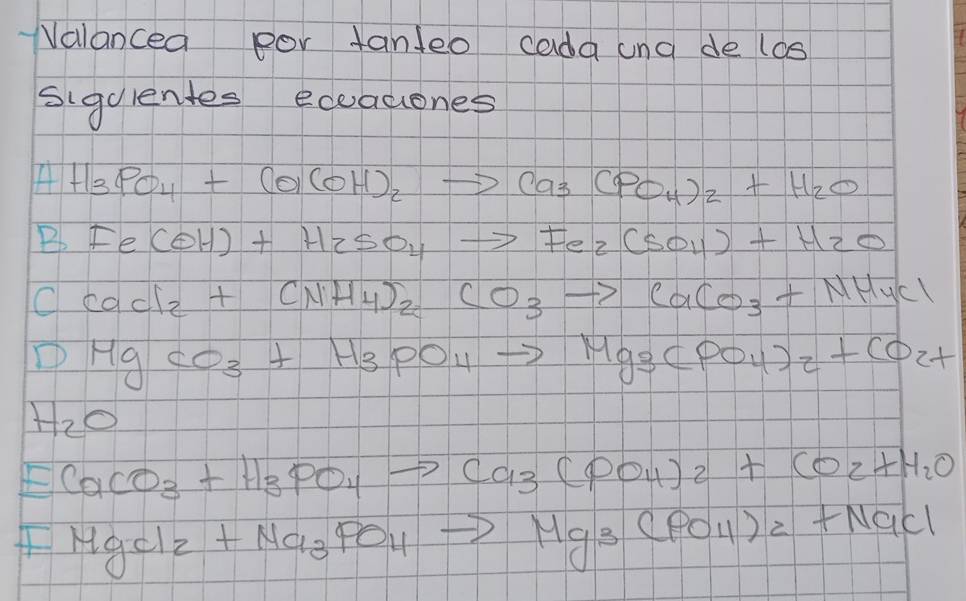 Valancea por tanteo cada una de las
siguientes ecuaciones
A H3PO4 + Ca(OH)2 → Ca3 (PO4)2 + H2O
B Fe(OH) + H2SO4 → Fe2(SO4) + H2O
C cacl2 + (NH4)2 CO3 → CaCO3 + NH4Cl
D Mg CO3 + H3PO4 → Mg3(PO4)2 + CO2+
H2O
E CaCO3 + H3PO4 → Ca3 (PO4)2 + CO2+H2O
F Mgcl2 + Na3PO4 → Mg3 (PO4)2 + Nacl